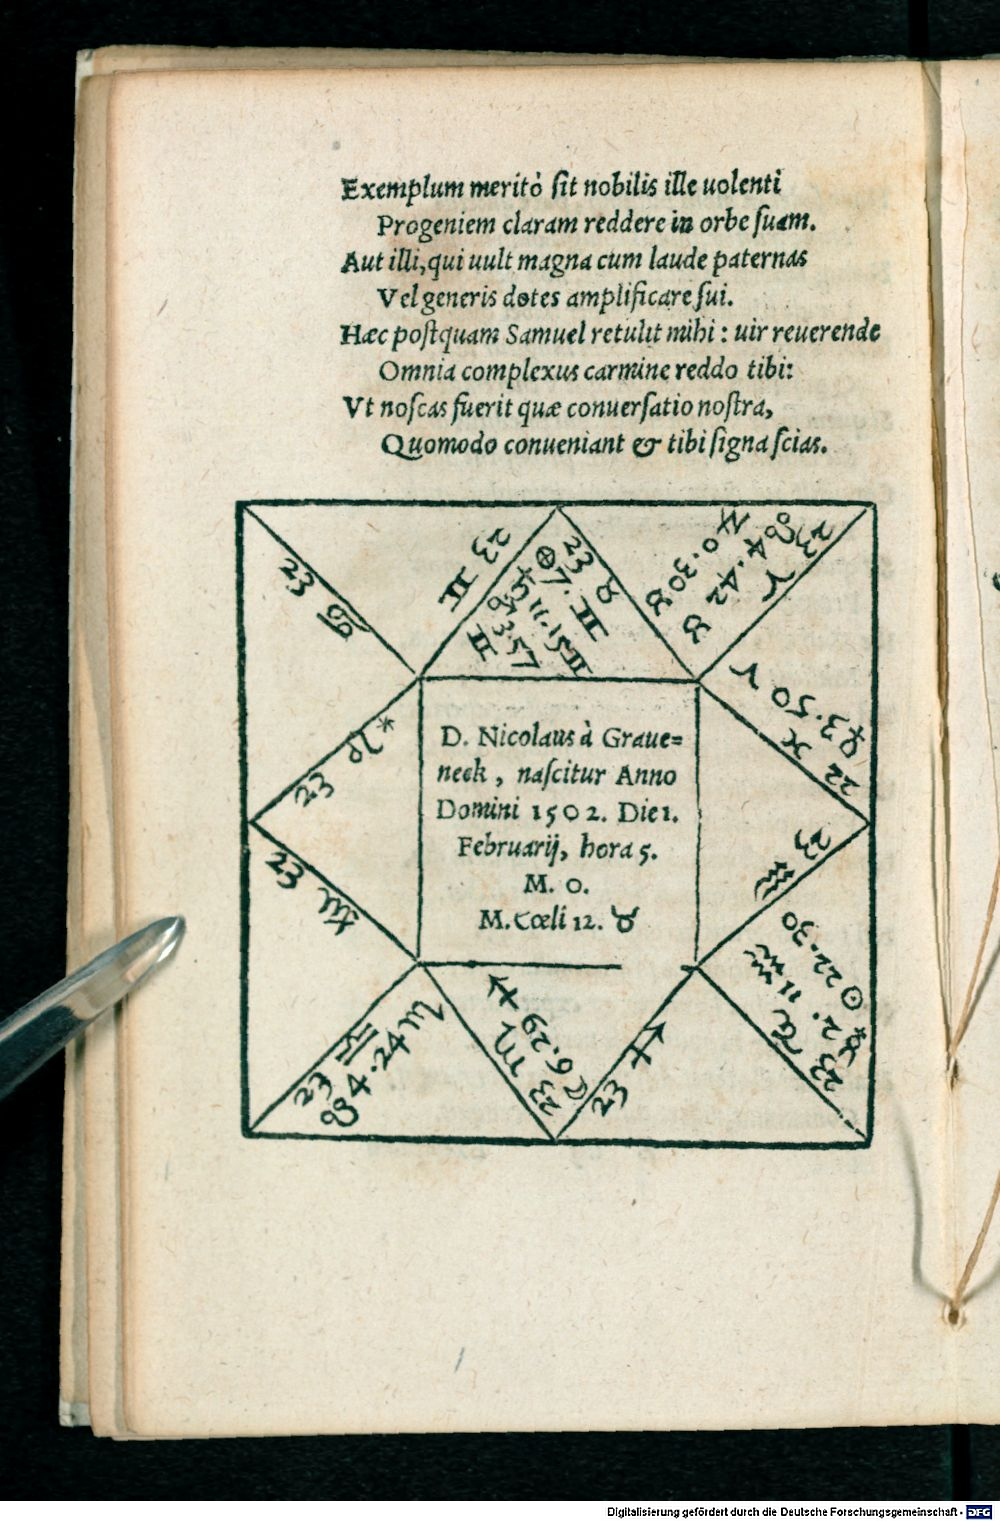 Exemplum meritò ſit nobilis ille uolenti
Progeniem claram reddere in orbe ſuam.
Aut illi, qui uult magna cum laude paternas
Vel generis dotes amplificare ſui.
Hæc poſtquam Samuel retulit mihi: uir reuerende
Omnia complexus carmine reddo tibi:
Vt noſcas fuerit quæ conuerſatio noſtra,
Quomodo conueniant & tibi ſigna ſcias.
23 ♋
23 ♊
⊕ 7. ♊
♄ 11.15 ♊
3.57
♊
23 ♉
0.30 ♉
☊ 4.42 ♉
23 ♈
♀ 3.50 ♈
22 ♓
23 ♌
23 ♍
D. Nicolaus à Graue=
neck, naſcitur Anno
Domini 1502. Die 1.
Februarij, hora 5.
M. 0.
M. Cœli 12. ♉
23 ♒
☉ 22.30
♒
☿ 2. 11 ♒
23 ♑
23 ♎
☋ 4.24 ♏
23 ♏
☾ 6.29 ♐
23 ♐
Digitalisierung gefördert durch die Deutsche Forschungsgemeinschaft - DFG